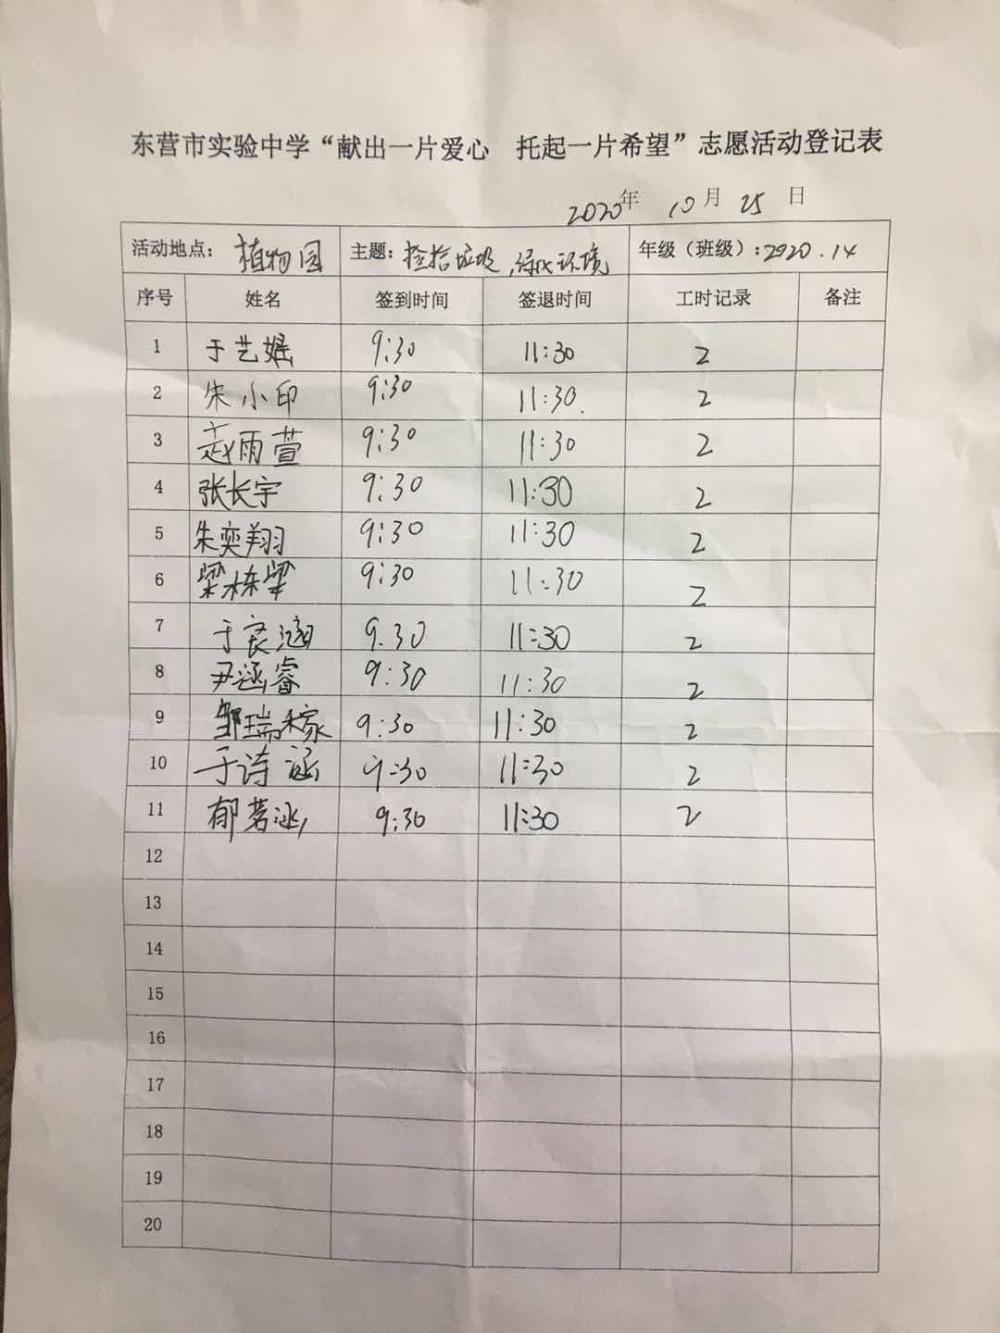 东营市实验中学“献出一片爱心 托起一片希望”志愿活动登记表
2020年 10月 25日
活动地点：植物园 主题：捡拾垃圾，绿化环境 年级（班级）：2920.14
序号 姓名 签到时间 签退时间 工时记录 备注
1 于艺娫 9:30 11:30 2
2 朱小印 9:30 11:30. 2
3 赵雨萱 9:30 11:30 2
4 张长宇 9:30 11:30 2
5 朱奕翔 9:30 11:30 2
6 梁栋梁 9:30 11:30 2
7 于良涵 9.30 11:30 2
8 尹涵睿 9:30 11:30 2
9 邹瑞稼 9:30 11:30 2
10 于诗涵 9:30 11:30 2
11 郁茗涵 9:30 11:30 2
12
13
14
15
16
17
18
19
20